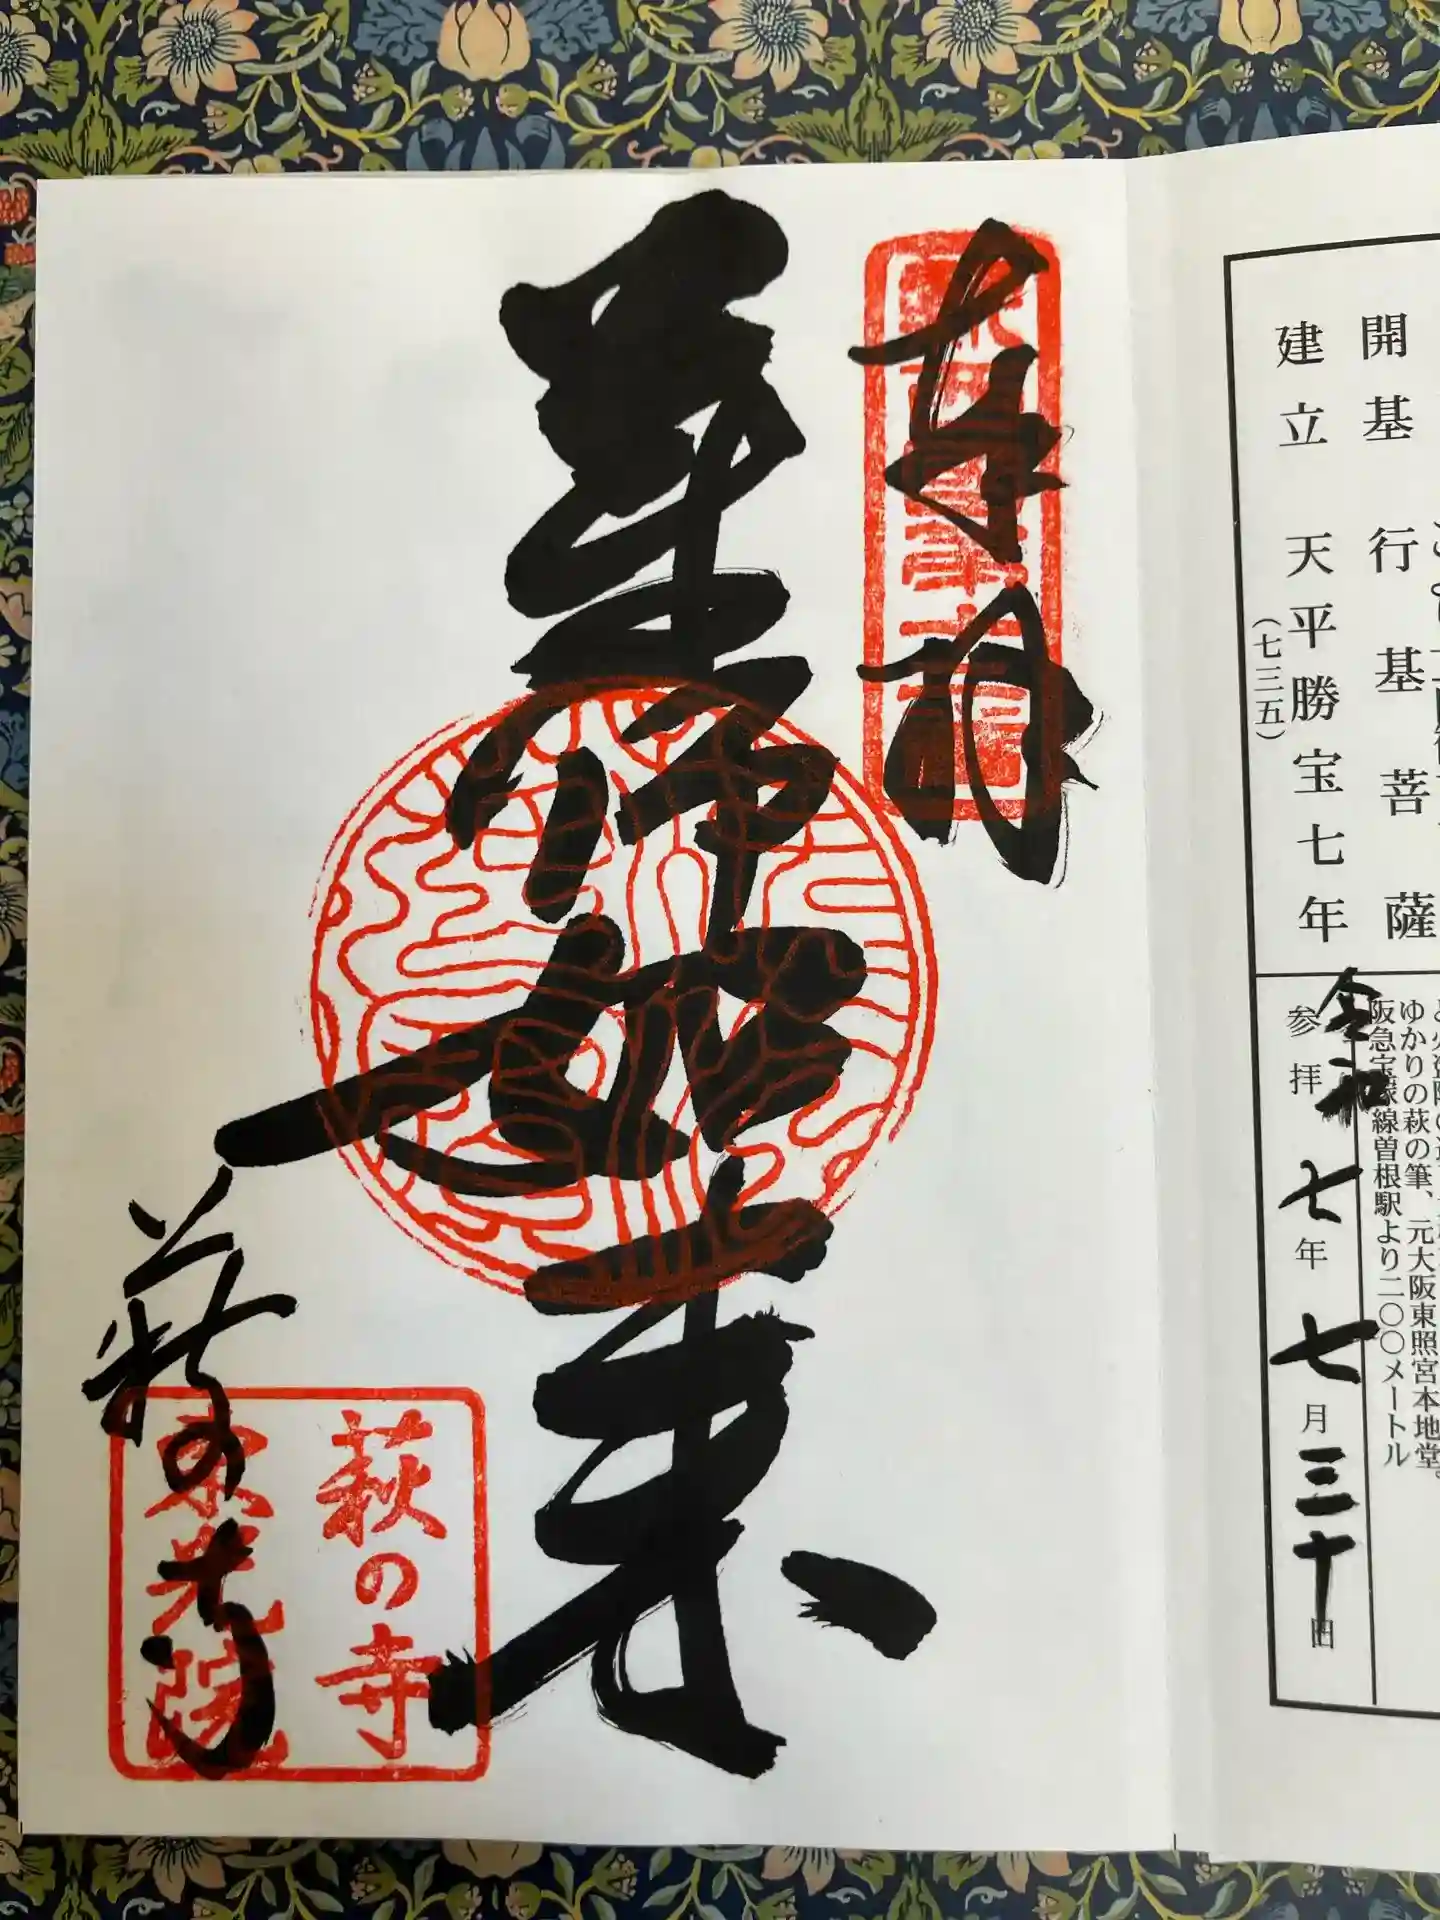 開基 行基菩薩
建立 天平勝宝七年
(七三五)
ゆかりの萩の筆、元大阪東照宮本地堂。
阪急宝塚線曽根駅より二〇〇メートル
参拝 令和七年七月三十日
奉拝
薬師如来
萩の寺
萩の寺
東光院